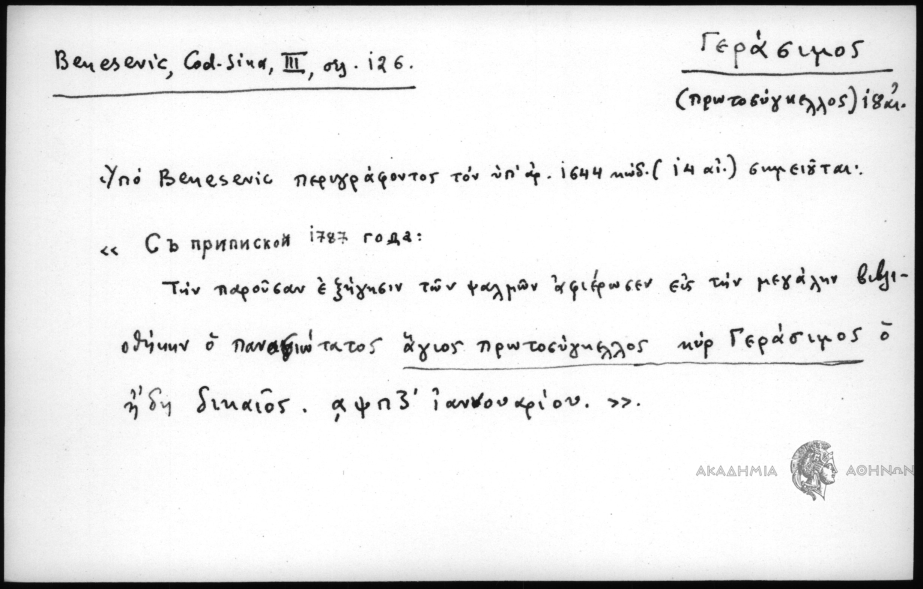 Benesevic, Cod. Sina, III, σελ. 126.
Γεράσιμος
(πρωτοσύγκελλος) 18 αἰ.
Ὑπό Benesevic περιγράφοντος τόν ὑπ' ἀρ. 1644 κώδ. (14 αἰ.) σημειοῦται:
« Съ припиской 1787 года:
Τήν παροῦσαν ἐξήγησιν τῶν ψαλμῶν ἀφιέρωσεν εἰς τήν μεγάλην βιβλι-
οθήκην ὁ πανοσιώτατος ἅγιος πρωτοσύγκελλος κύρ Γεράσιμος ὁ
ἤδη δικαῖος. ͵αψπζ' ἰαννουαρίου. ».
ΑΚΑΔΗΜΙΑ ΑΘΗΝΩΝ